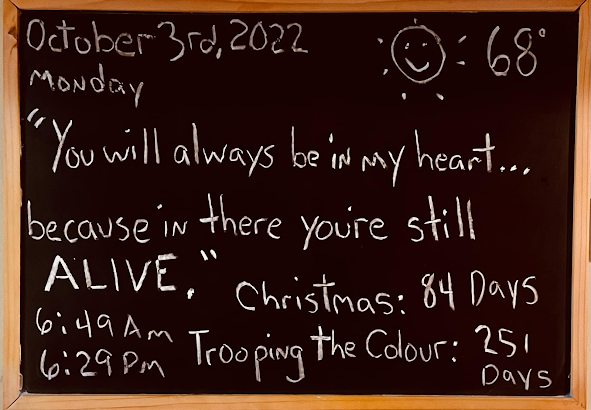 October 3rd, 2022
68°
Monday
"You will always be in my heart...
because in there you're still
ALIVE."
Christmas: 84 Days
6:49 Am
6:29 Pm
Trooping the Colour: 251
Days